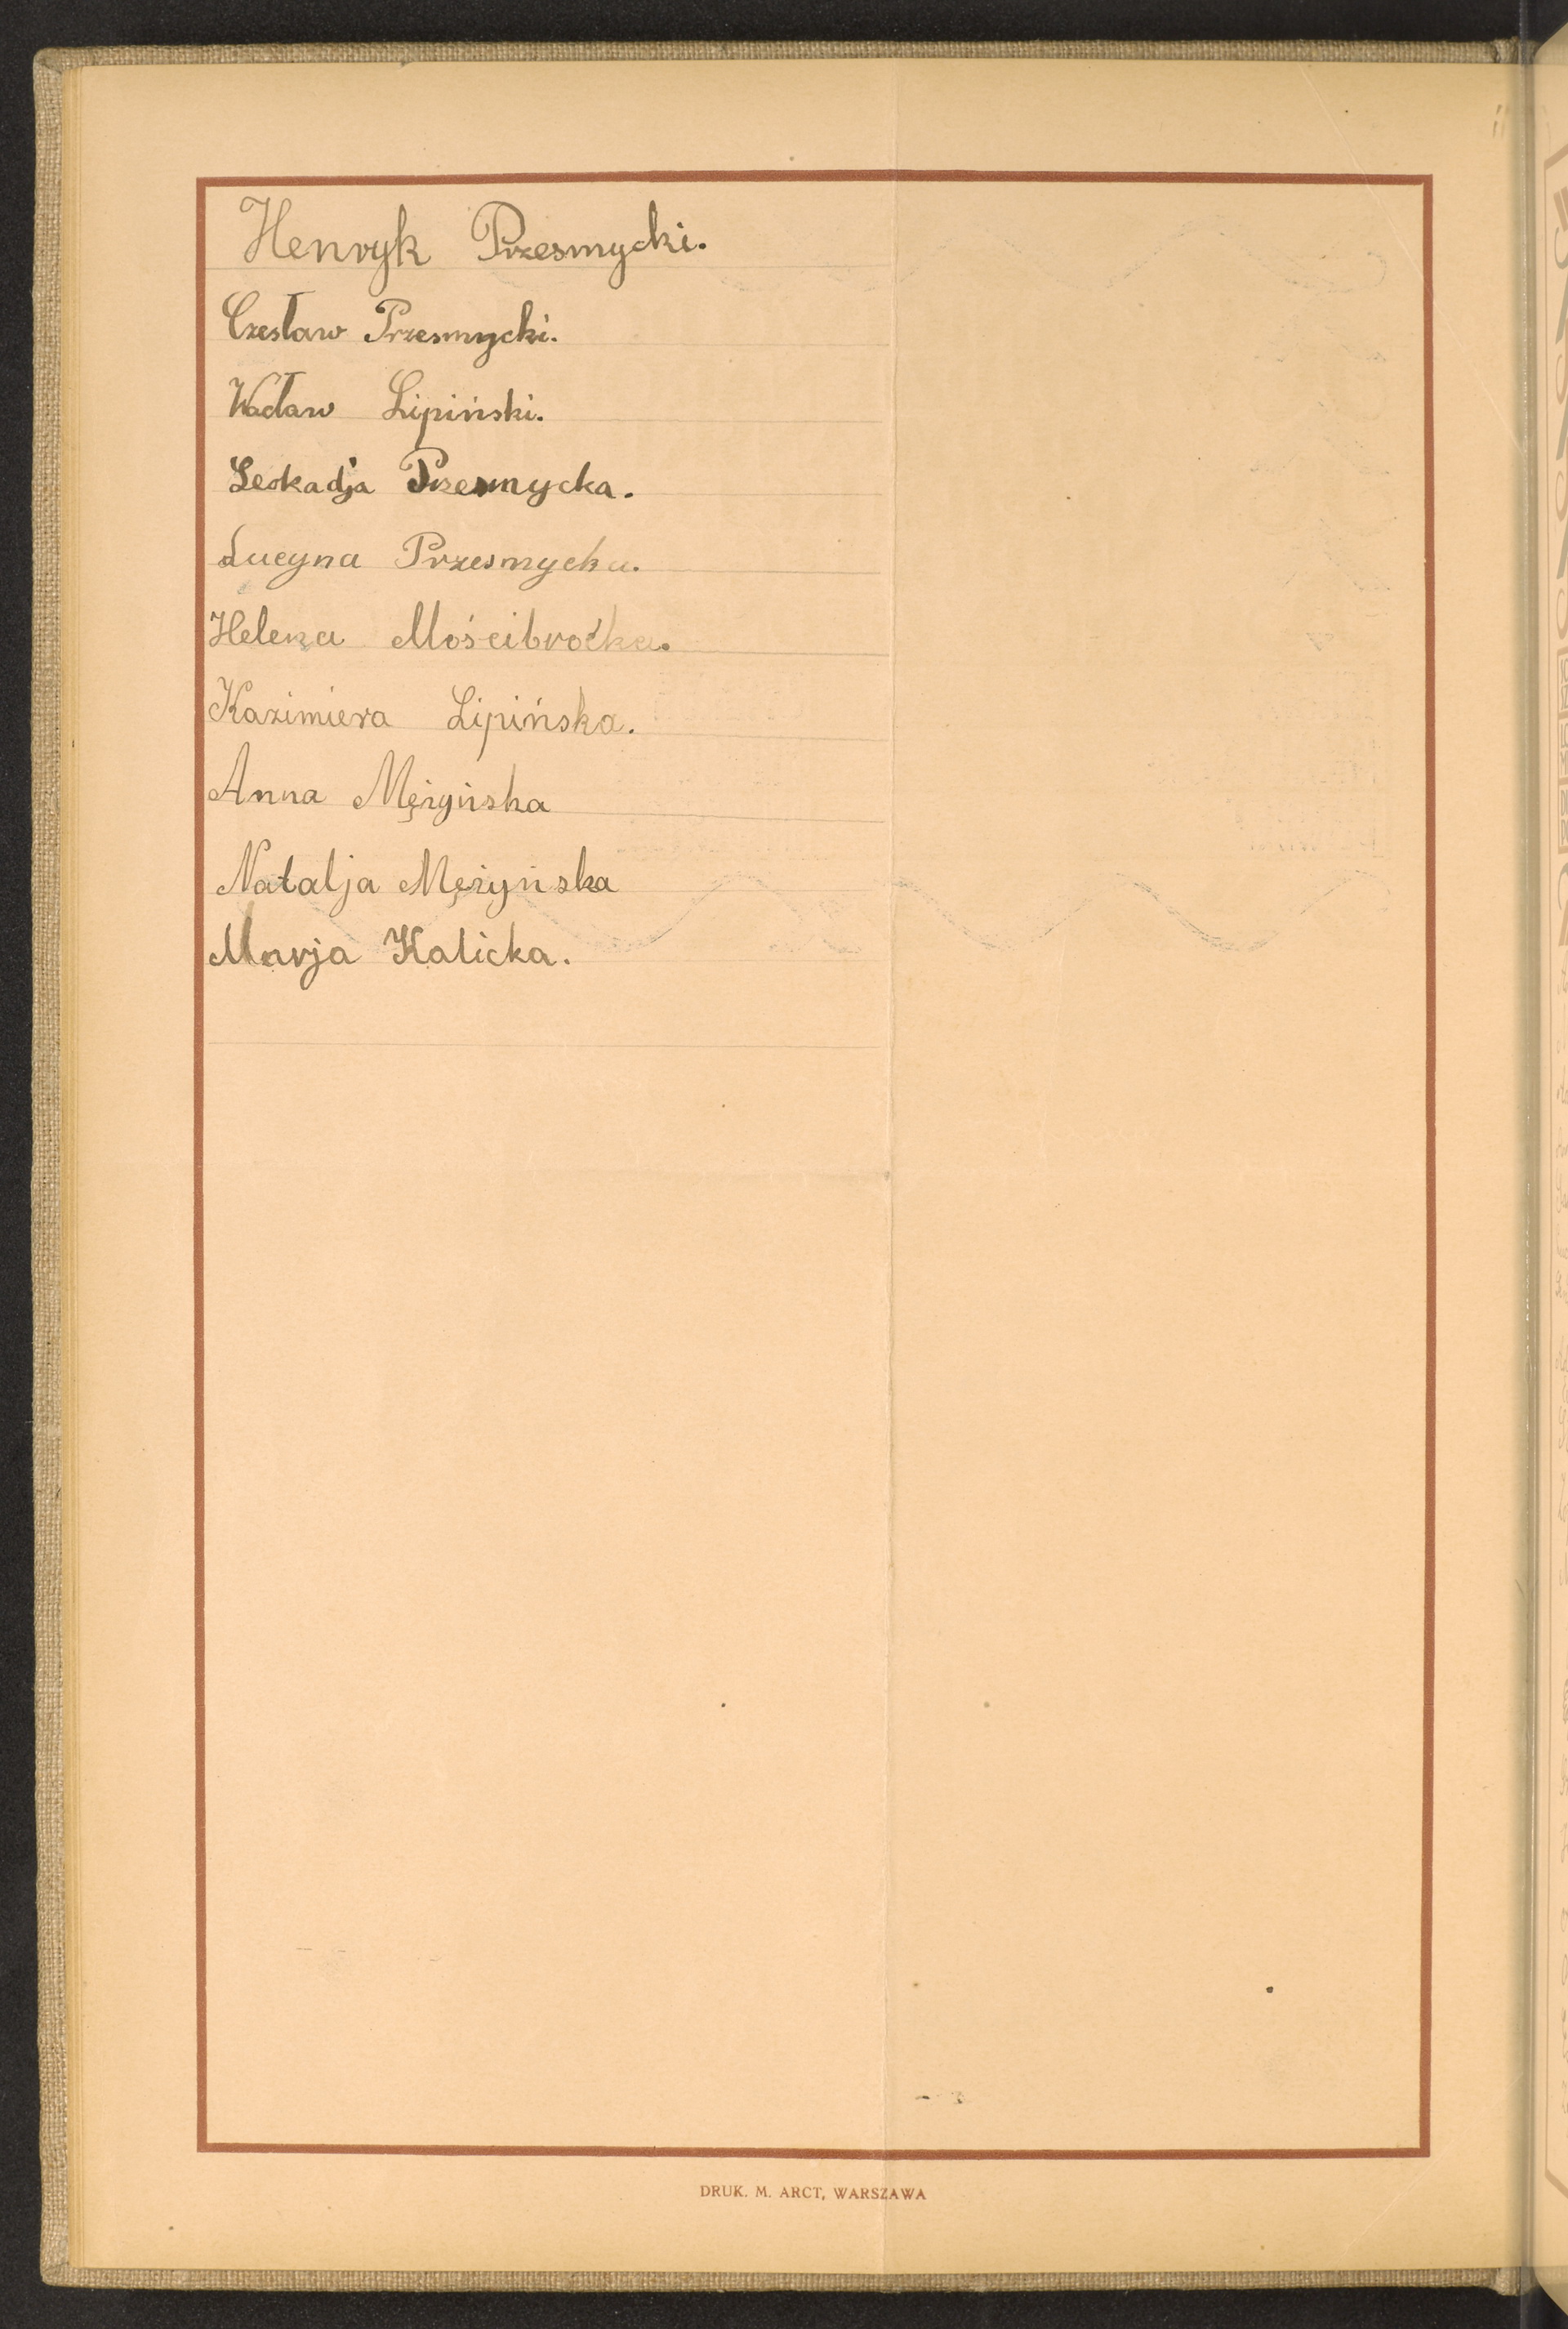 Henryk Przesmycki.
Czesław Przesmycki.
Wacław Lipiński.
Leokadja Przesmycka.
Lucyna Przesmycka.
Helena Mościbrocka.
Kazimiera Lipińska.
Anna Mężyńska
Natalja Mężyńska
Marja Kalicka.
DRUK. M. ARCT, WARSZAWA